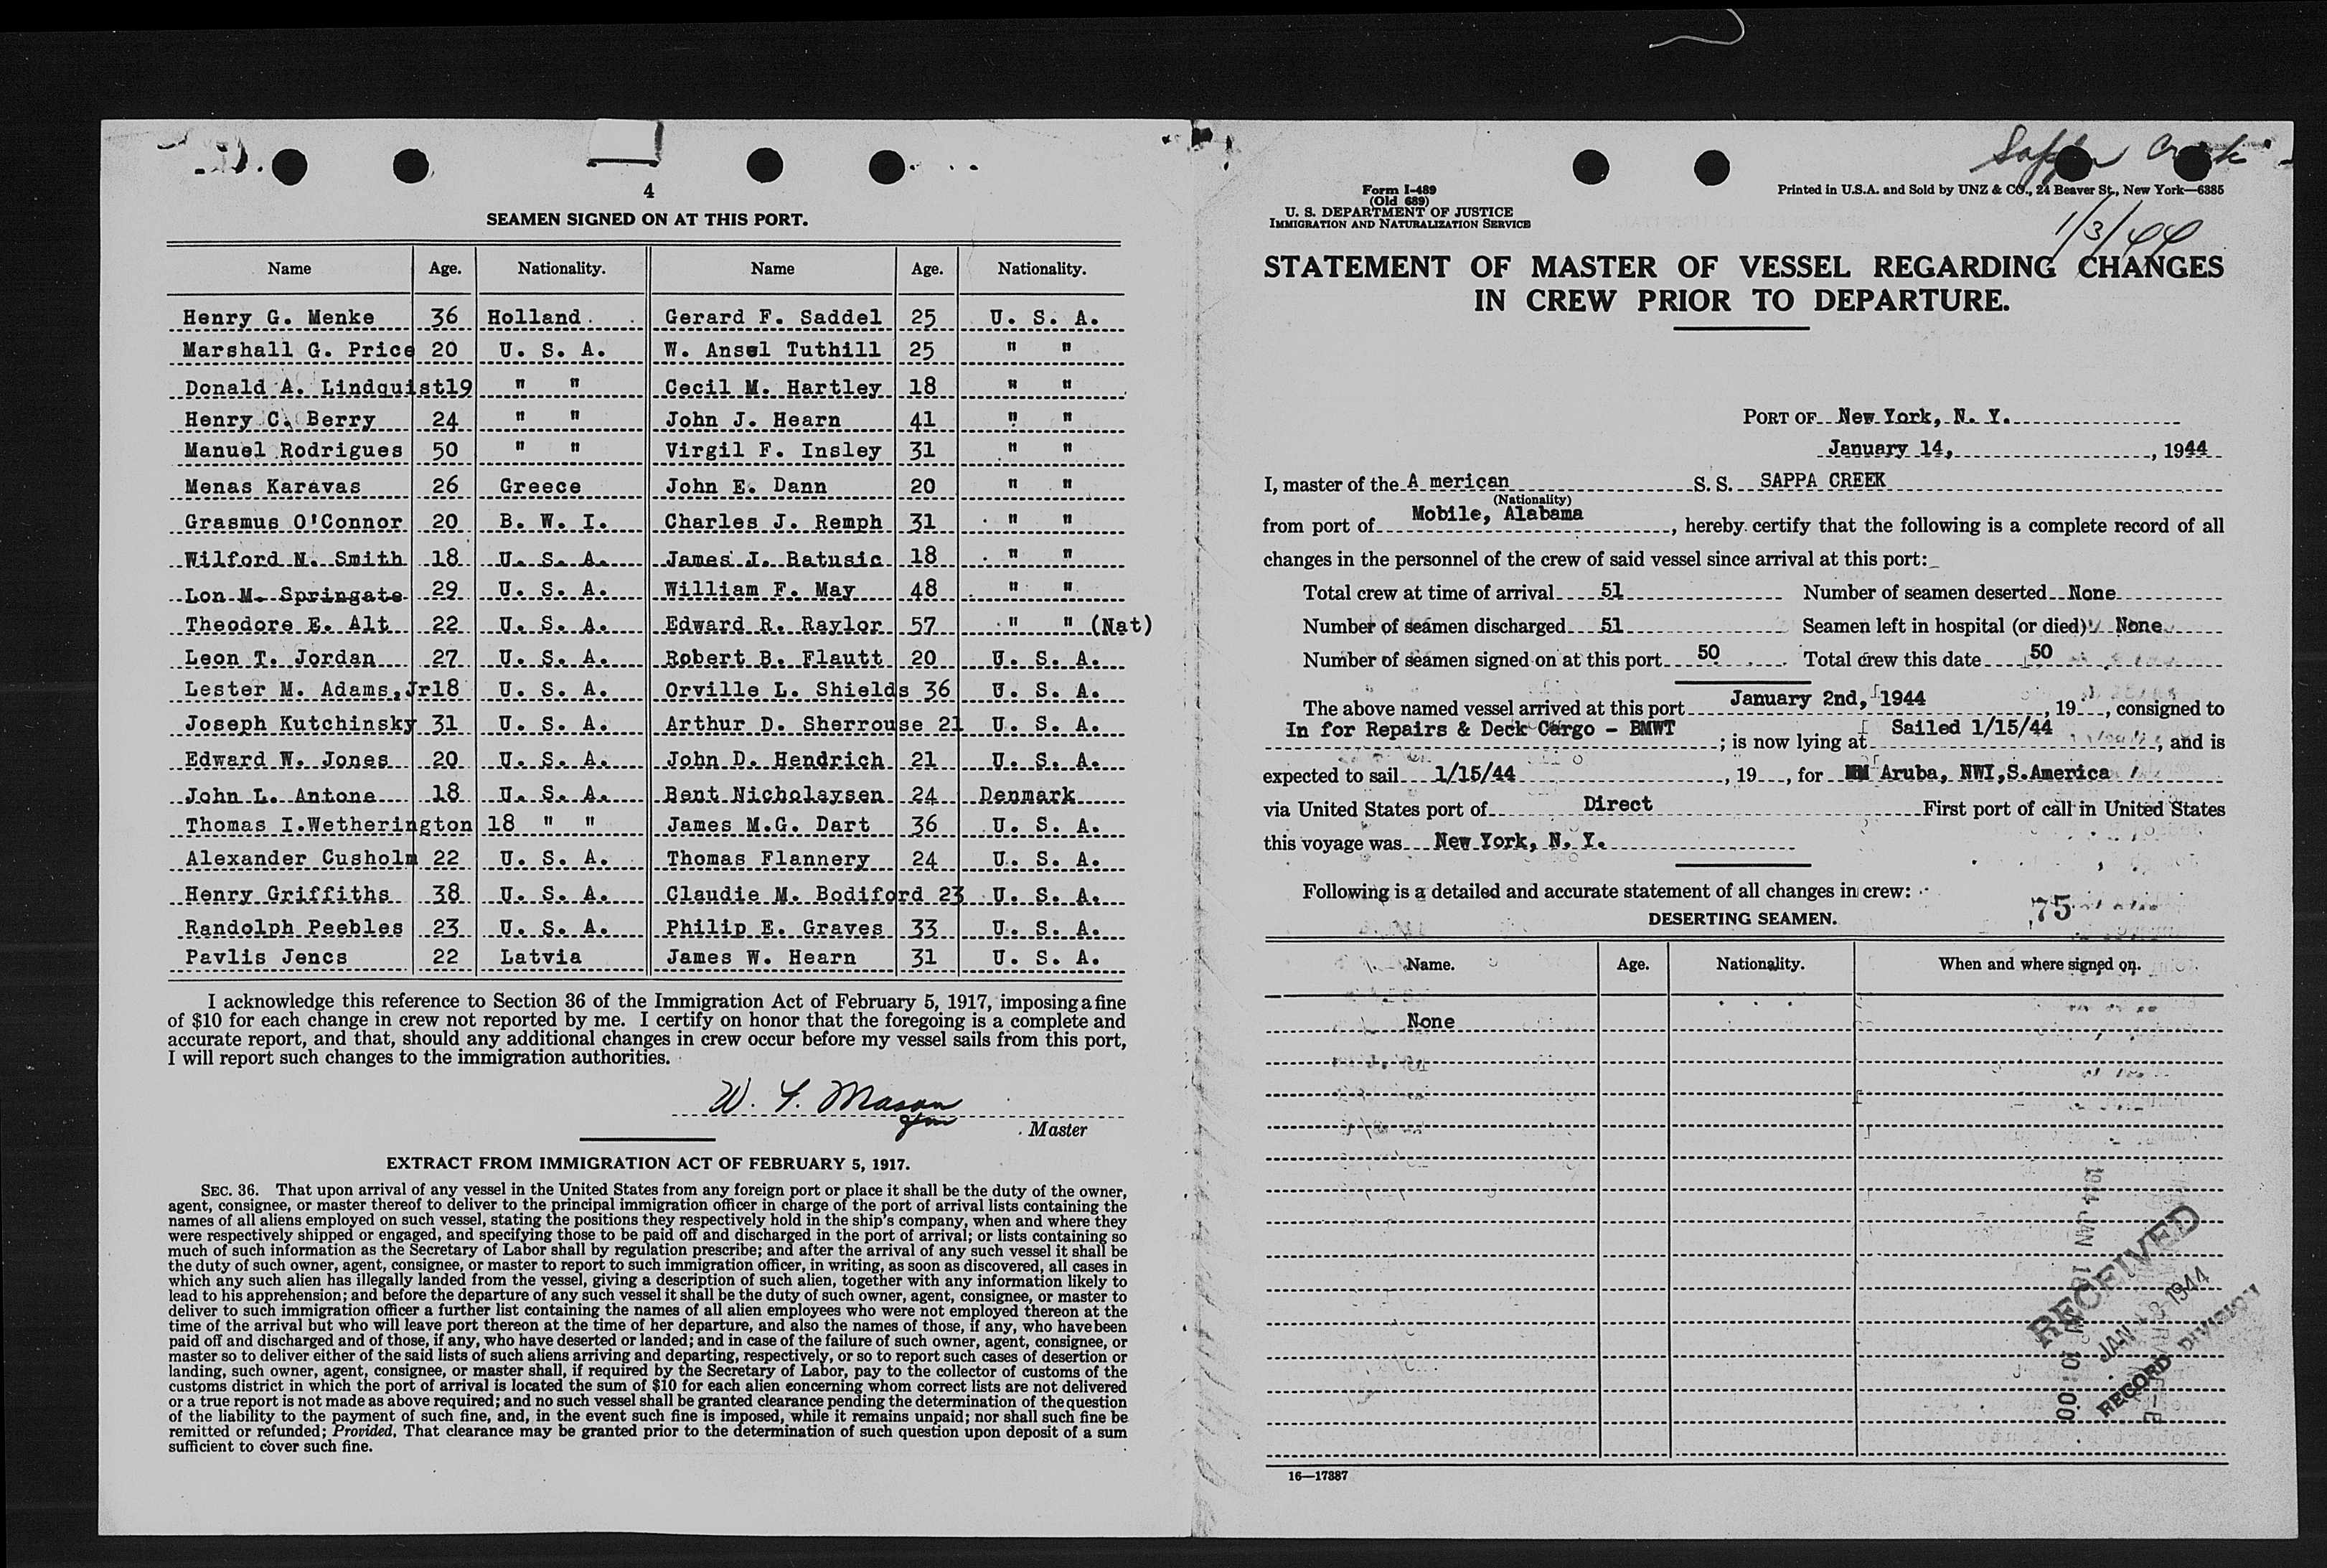 4
SEAMEN SIGNED ON AT THIS PORT.
Name Age. Nationality. Name Age. Nationality.
Henry G. Menke 36 Holland Gerard F. Saddel 25 U. S. A.
Marshall G. Price 20 U. S. A. W. Ansel Tuthill 25 " "
Donald A. Lindquist 19 " " Cecil M. Hartley 18 " "
Henry C. Berry 24 " " John J. Hearn 41 " "
Manuel Rodrigues 50 " " Virgil F. Insley 31 " "
Menas Karavas 26 Greece John E. Dann 20 " "
Grasmus O'Connor 20 B. W. I. Charles J. Remph 31 " "
Wilford N. Smith 18 U. S. A. James J. Batusic 18 " "
Lon M. Springate 29 U. S. A. William F. May 48 " "
Theodore E. Alt 22 U. S. A. Edward R. Raylor 57 " " (Nat)
Leon T. Jordan 27 U. S. A. Robert B. Flautt 20 U. S. A.
Lester M. Adams,Jr 18 U. S. A. Orville L. Shields 36 U. S. A.
Joseph Kutchinsky 31 U. S. A. Arthur D. Sherrouse 21 U. S. A.
Edward W. Jones 20 U. S. A. John D. Hendrich 21 U. S. A.
John L. Antone 18 U. S. A. Bent Nicholaysen 24 Denmark
Thomas I.Wetherington 18 " " James M.G. Dart 36 U. S. A.
Alexander Cusholm 22 U. S. A. Thomas Flannery 24 U. S. A.
Henry Griffiths 38 U. S. A. Claudie M. Bodiford 23 U. S. A.
Randolph Peebles 23 U. S. A. Philip E. Graves 33 U. S. A.
Pavlis Jencs 22 Latvia James W. Hearn 31 U. S. A.
I acknowledge this reference to Section 36 of the Immigration Act of February 5, 1917, imposing a fine
of $10 for each change in crew not reported by me. I certify on honor that the foregoing is a complete and
accurate report, and that, should any additional changes in crew occur before my vessel sails from this port,
I will report such changes to the immigration authorities.
W. F. Mason
Master
EXTRACT FROM IMMIGRATION ACT OF FEBRUARY 5, 1917.
SEC. 36. That upon arrival of any vessel in the United States from any foreign port or place it shall be the duty of the owner,
agent, consignee, or master thereof to deliver to the principal immigration officer in charge of the port of arrival lists containing the
names of all aliens employed on such vessel, stating the positions they respectively hold in the ship's company, when and where they
were respectively shipped or engaged, and specifying those to be paid off and discharged in the port of arrival; or lists containing so
much of such information as the Secretary of Labor shall by regulation prescribe; and after the arrival of any such vessel it shall be
the duty of such owner, agent, consignee, or master to report to such immigration officer, in writing, as soon as discovered, all cases in
which any such alien has illegally landed from the vessel, giving a description of such alien, together with any information likely to
lead to his apprehension; and before the departure of any such vessel it shall be the duty of such owner, agent, consignee, or master to
deliver to such immigration officer a further list containing the names of all alien employees who were not employed thereon at the
time of the arrival but who will leave port thereon at the time of her departure, and also the names of those, if any, who have been
paid off and discharged and of those, if any, who have deserted or landed; and in case of the failure of such owner, agent, consignee, or
master so to deliver either of the said lists of such aliens arriving and departing, respectively, or so to report such cases of desertion or
landing, such owner, agent, consignee, or master shall, if required by the Secretary of Labor, pay to the collector of customs of the
customs district in which the port of arrival is located the sum of $10 for each alien concerning whom correct lists are not delivered
or a true report is not made as above required; and no such vessel shall be granted clearance pending the determination of the question
of the liability to the payment of such fine, and, in the event such fine is imposed, while it remains unpaid; nor shall such fine be
remitted or refunded; Provided, That clearance may be granted prior to the determination of such question upon deposit of a sum
sufficient to cover such fine.
Sappa Creek
1/3/44
Form I-489
(Old 689)
U. S. DEPARTMENT OF JUSTICE
IMMIGRATION AND NATURALIZATION SERVICE
Printed in U.S.A. and Sold by UNZ & CO., 24 Beaver St., New York—6385
STATEMENT OF MASTER OF VESSEL REGARDING CHANGES
IN CREW PRIOR TO DEPARTURE.
PORT OF New York, N. Y.
January 14, , 1944
I, master of the A merican S. S. SAPPA CREEK
(Nationality)
from port of Mobile, Alabama , hereby certify that the following is a complete record of all
changes in the personnel of the crew of said vessel since arrival at this port:
Total crew at time of arrival 51 Number of seamen deserted None
Number of seamen discharged 51 Seamen left in hospital (or died) None
Number of seamen signed on at this port 50 Total crew this date 50
The above named vessel arrived at this port January 2nd, 1944 , 19 , consigned to
In for Repairs & Deck Cargo - BMWT ; is now lying at Sailed 1/15/44 , and is
expected to sail 1/15/44 , 19 , for Aruba, NWI,S.America
via United States port of Direct First port of call in United States
this voyage was New York, N. Y.
Following is a detailed and accurate statement of all changes in crew:
75
DESERTING SEAMEN.
Name. Age. Nationality. When and where signed on.
None
RECEIVED
JAN 18 1944
RECORD DIVISION
16—17387